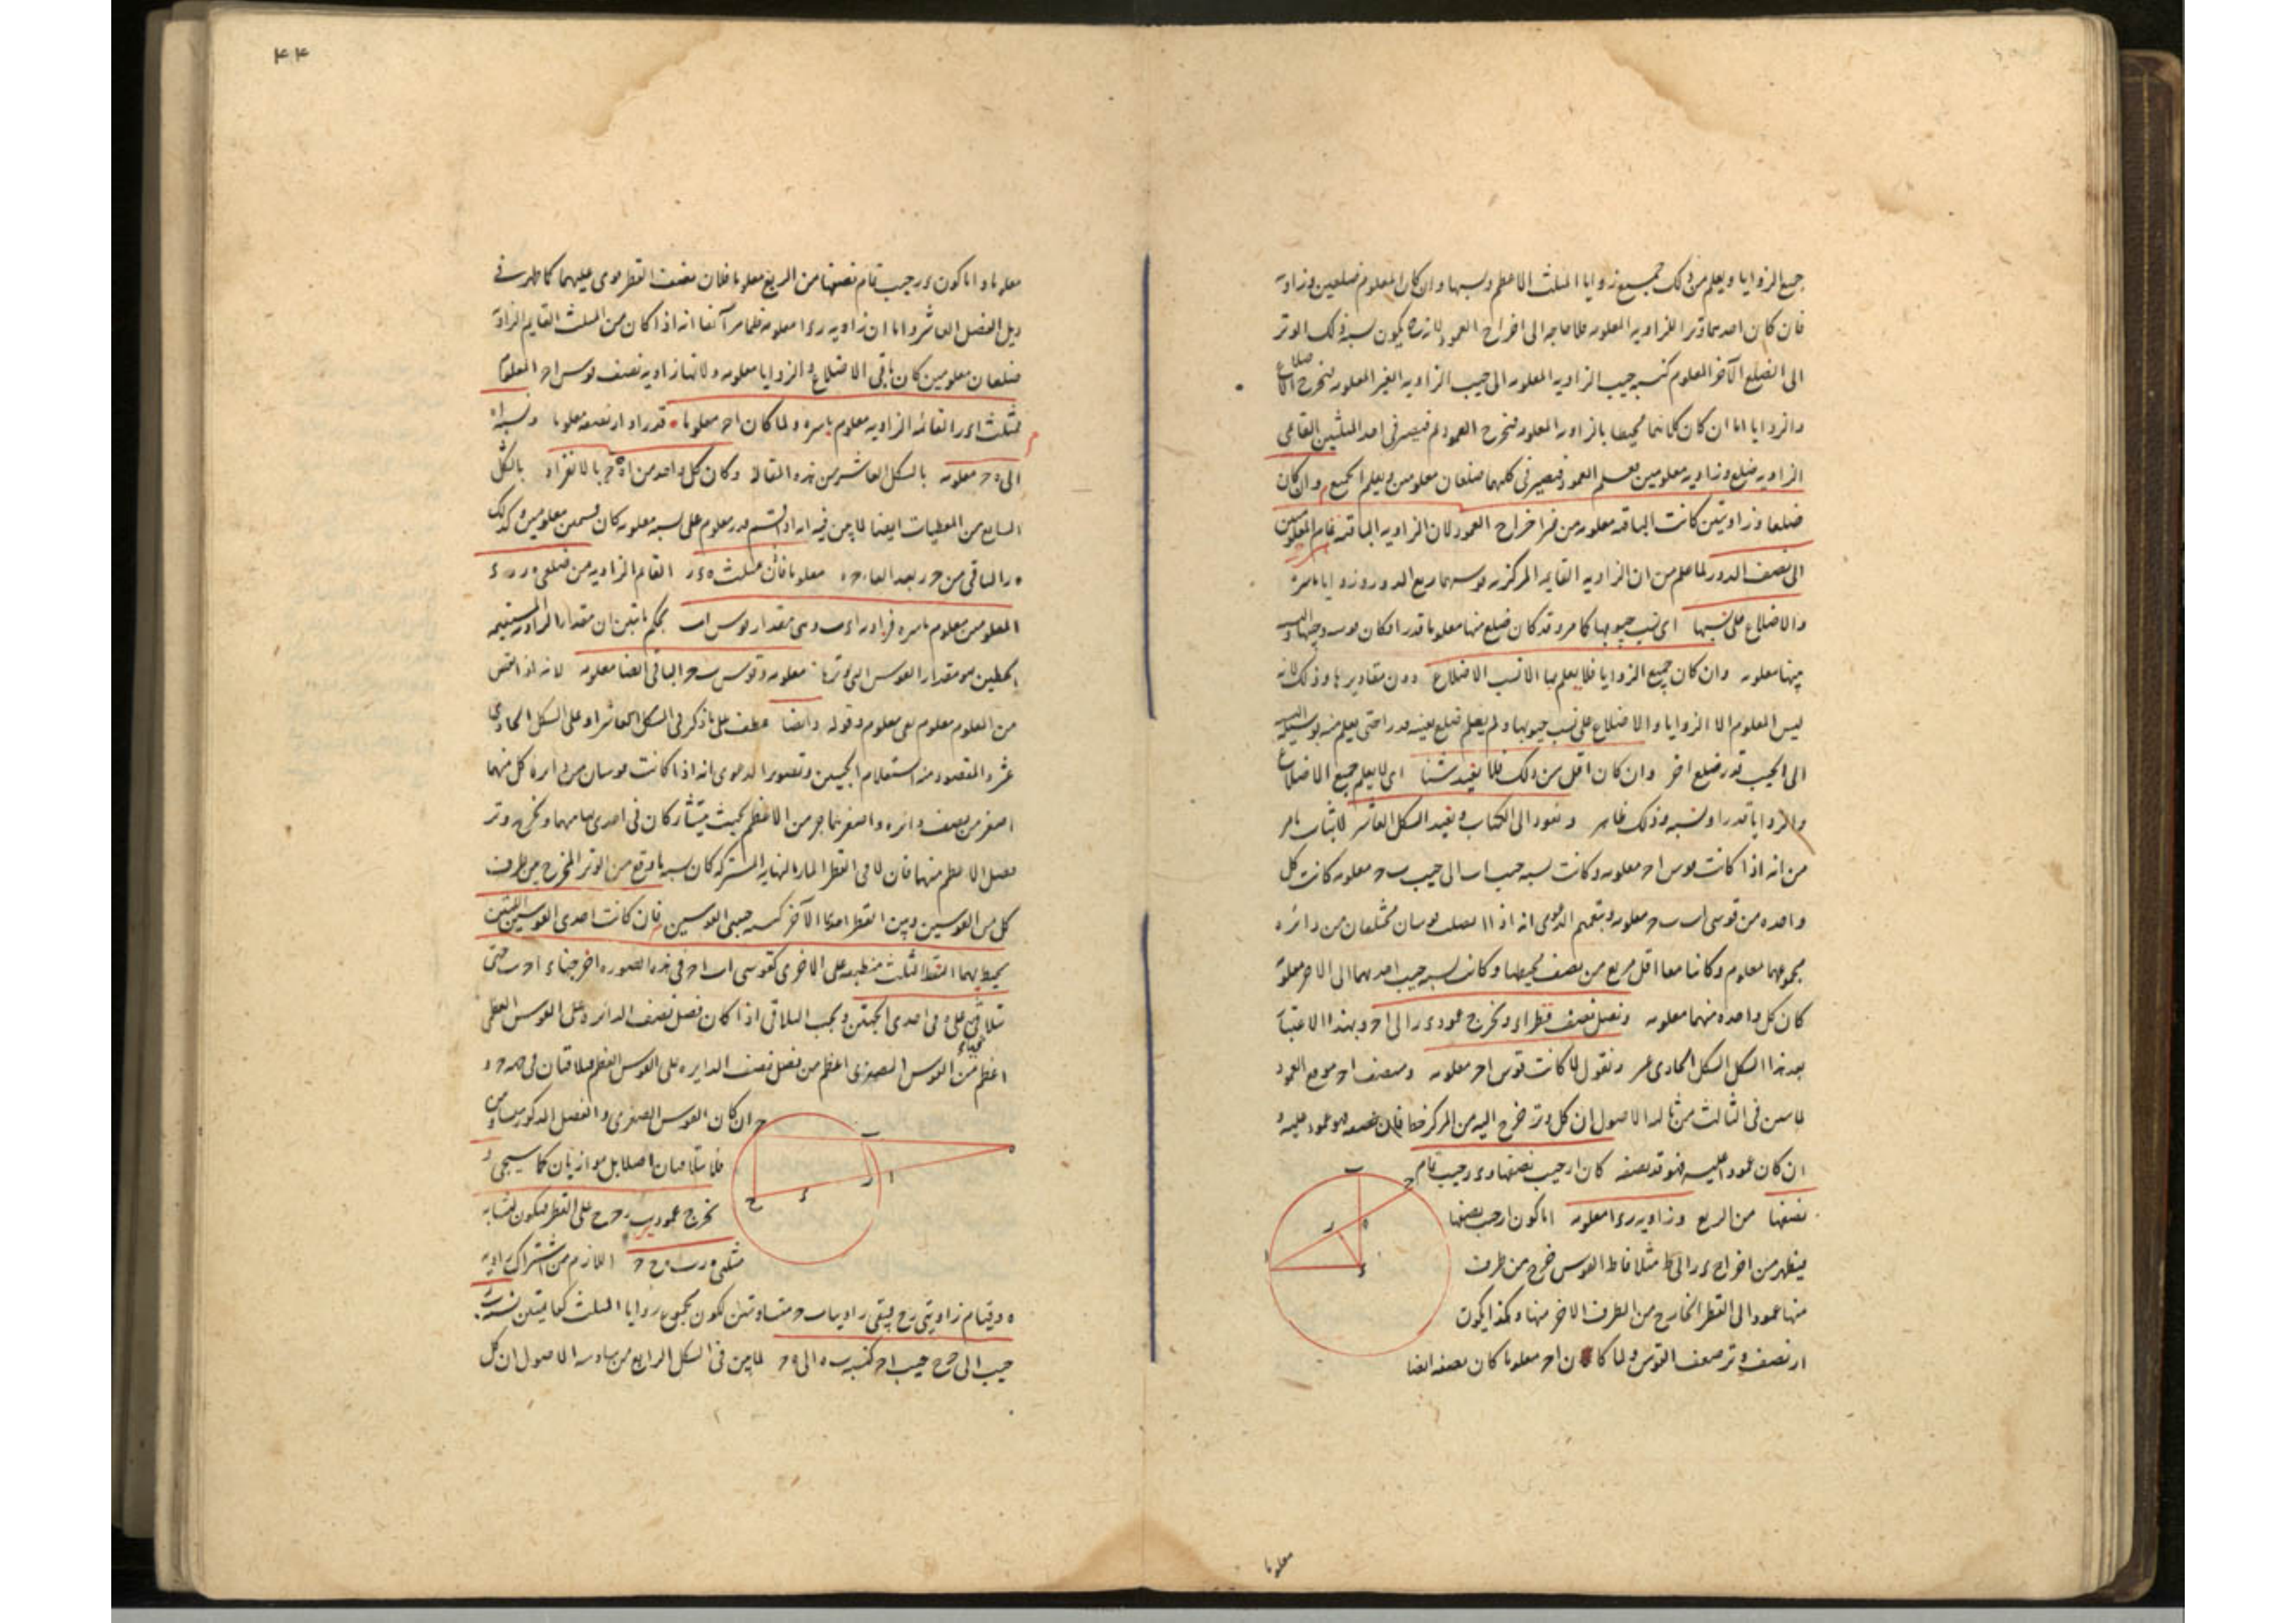 جميع الزوايا ويعلم من ذلك جميع زوايا المثلث الاعظم ونسبها وان كان المعلوم ضلعين وزاوية
فان كان احدهما وتر الزاويه المعلومه فلا حاجه الى اخراج العمود لانه يكون نسبة ذلك الوتر
الى الضلع الآخر المعلوم كنسبه جيب الزاويه المعلومه الى جيب الزاويه الغير المعلومه فيخرج الاضلاع
والزوايا اما ان كان كلاهما محيطا بالزاويه المعلومه فيخرج العمود ثم فيصير فى احد المثلثين القائمى
الزاويه ضلع وزاويه معلومين فيعلم العمود فيصير فى كليهما ضلعان معلومين ويعلم الجميع وان كان
ضلعا وزاويتين كانت الباقيه معلومه من غير اخراج العمود لان الزاويه الباقيه تمام المعلومتين
الى نصف الدور لما علم من ان الزاويه القايمه المركزيه قوسها ربع الدور وزوايا
والاضلاع على نسبها اى نسب جيوبها كما مر وقد كان ضلع منها معلوما قدرا فكان
معلومه وان كان جميع الزوايا فلا يعلم بها الا نسب الاضلاع دون مقاديرها وذلك لانه
ليس المعلوم الا الزوايا والاضلاع على نسب جيوبها ولم يعلم ضلع بعينه قدرا حتى يعلم منه بوسيله
الى الجيب قدر ضلع اخر وان كان اقل من ذلك فلا يفيد شيئا اى لا يعلم جميع الاضلاع
والزوايا قدرا ونسبه وذلك ظاهر ونعود الى الكتاب ونعيد الشكل العاشر لاثبات ما مر
من انه اذا كانت قوس اح معلومه وكانت نسبه جيب اب الى جيب ب ح معلومه كانت كل
واحده من قوسى اب ب ح معلومه الدعوى انه اذا قوسان مختلفان من دائره
مجموعهما معلوم وكانتا معا اقل من نصف محيطها وكانت نسبه جيب احديهما الى الاخر معلومة
كان كل واحده منهما معلومه ونصل نصف قطر اء ونخرج عمود ء ر الى اح وبهذا الاعتبار
بعد هذا الشكل الشكل الحادى عشر ونقول لما كانت قوس اح معلومه ومنتصف اح موقع العمود
لما بين فى الثالث من ثالثه الاصول ان كل وتر خرج اليه من المركز خط فان نصفه فهو عمود عليه و
ان كان عمودا عليه فهو قد نصفه كان ار جيب نصفها و ء ر جيب تمام
نصفها من الربع وزاويه ر ء ا معلومه اما كون ار جيب نصفها
فيظهر من اخراج ء ر الى ط مثلا فاط القوس خرج من طرف
منها عمود الى القطر الخارج من الطرف الاخر منها وهكذا يكون
ار نصف وتر ضعف القوس ولما كان اح معلوما كان نصفه ايضا
معلوما
٤٤
معلوما واما كون ء ر جيب تمام نصفها من الربع معلوما فلان نصف القطر قوى عليهما كما ظهر فى
ذيل الفصل العاشر واما ان زاويه ر ء ا معلومه فلما مر آنفا انه اذا كان من المثلث القايم الزاوية
ضلعان معلومين كان باقى الاضلاع والزوايا معلومه ولانها زاويه نصف قوس اح المعلوم
فمثلث اء ر القائم الزاويه معلوم باسره ولما كان اح معلوما قدرا و ار نصفه معلوما ونسبه اه
الى ه ح معلومه بالشكل العاشر من هذه المقاله وكان كل واحد من اه ه ح بالانفراد بالشكل
السابع من المعطيات ايضا لما بين فيه انه اذا قسم قدر معلوم على نسبه معلومه كان قسمين معلومين وكذلك
ه ر الباقى من ح ر بعد القاء ح ه معلوما فان مثلث ه ء ر القايم الزاويه من ضلعى ه ر ر ء
المعلومين معلوم باسره فزاويه اء ب وهى مقدار قوس اب بحكم ما تبين ان مقدار الزاويه المستقيمه
الخطين هو مقدار القوس التى وترها معلومه وقوس ب ح الباقى ايضا معلومه لانه اذا نقص
من المعلوم معلوم بقى معلوم وقوله وايضا عطف على ما ذكر فى الشكل العاشر او على الشكل الحادى
عشر والمقصود منه استعلام الجيبين وتصوير الدعوى انه اذا كانت قوسان من دايره كل منهما
اصغر من نصف دائره واصغرهما جزء من الاعظم بحيث يتشاركان فى احدى نهايتهما ونخرج وتر
فضل الاعظم منهما فان لاقى القطر المار بالنهايه المشتركه كان نسبه ما وقع من الوتر المخرج بين طرف
كل من القوسين وبين القطر احدهما الى الآخر كنسبه جيبى القوسين فان كانت احدى القوسين اللتين
يحيط بهما النقط الثلث منطبقه على الاخرى كقوسى اب اح فى هذه الصوره اخرجنا ء ا ح ب حتى
تلاقيا على ه فى احدى الجهتين ويجب التلاقى اذا كان فضل نصف الدائره على القوس العظمى
اعظم من القوس الصغرى اعظم من فضل نصف الدايره على القوس العظم فيلاقيان فى جهه ح و
ان كان القوس الصغرى والفضل المذكور متساويين
فلا يتلاقيان اصلا بل موازيان كما سيجى و
نخرج عمودى ب ر ح ح على القطر فيكون لتشابه
مثلثى ه ر ب ه ح ح اللازم من اشتراك زاويه
ه وقيام زاويتى ر ح فيبقى زاويتا ب ح متساويتين لكون مجموع زوايا المثلث كقايمتين نسبه ب ر
جيب اب الى ح ح جيب اح كنسبه ب ه الى ه ح لما بين فى الشكل الرابع من سادسه الاصول ان كل